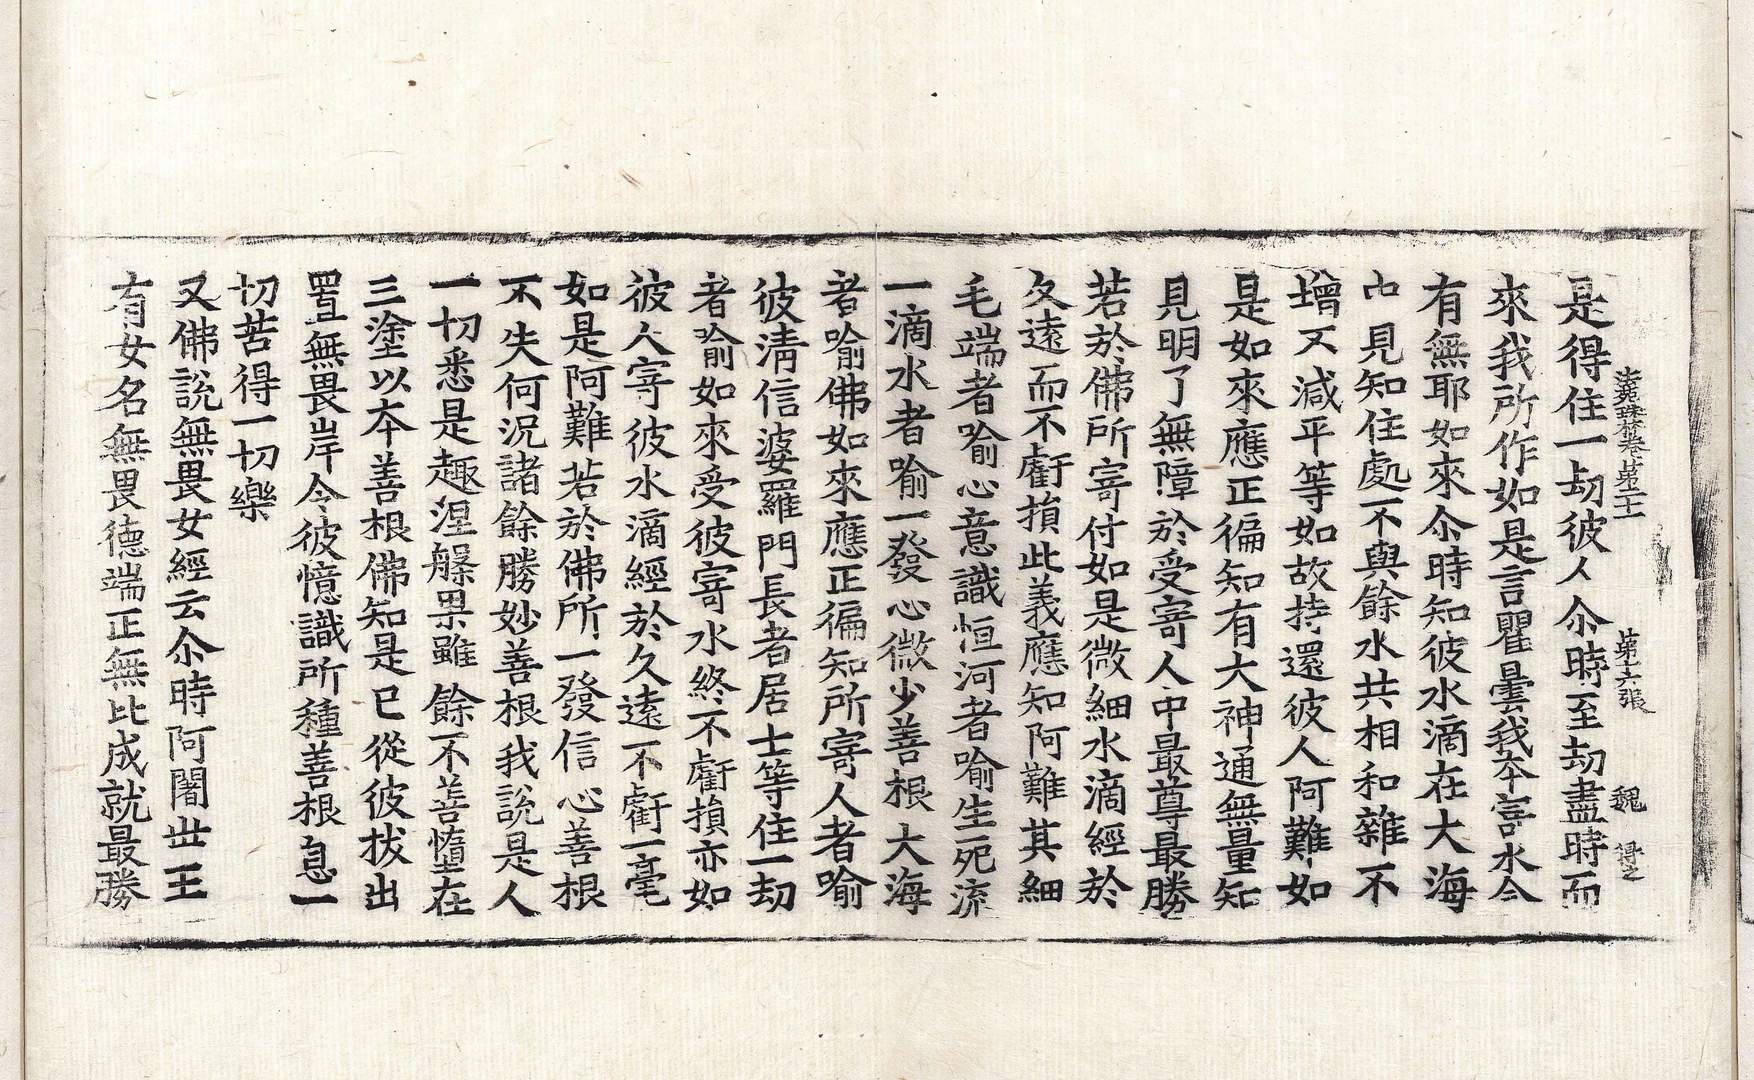 是得住一劫彼人尒時至劫盡時而
來我所作如是言瞿曇我本寄水今
有無耶如來尒時知彼水滴在大海
中見知住處不與餘水共相和雜不
增不減平等如故持還彼人阿難如
是如來應正徧知有大神通無量知
見明了無障於受寄人中最尊最勝
若於佛所寄付如是微細水滴經於
久遠而不虧損此義應知阿難其細
毛端者喻心意識恒河者喻生死流
一滴水者喻一發心微少善根大海
者喻佛如來應正徧知所寄人者喻
彼清信婆羅門長者居士等住一劫
者喻如來受彼寄水終不虧損亦如
彼人寄彼水滴經於久遠不虧一毫
如是阿難若於佛所一發信心善根
不失何況諸餘勝妙善根我說是人
一切悉是趣涅槃果雖餘不善墮在
三塗以本善根佛知是已從彼拔出
置無畏岸令彼憶識所種善根息一
切苦得一切樂
又佛說無畏女經云尒時阿闍世王
有女名無畏德端正無比成就最勝
第六張
魏 得之